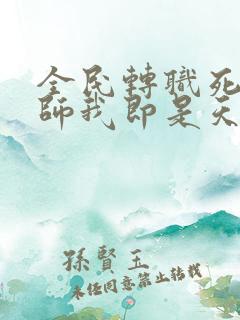 全民轉職死
師我即是天
孫賢玉
未经同意禁止转载